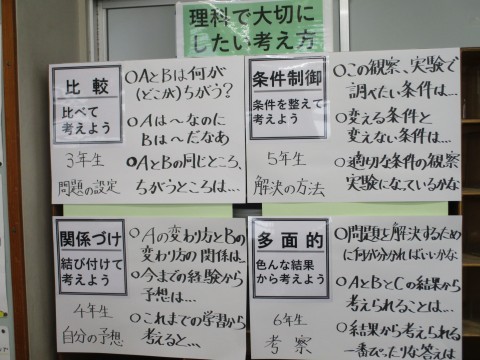 理科で大切に
したい考え方
比較
比べて
考えよう
3年生
問題の設定
○AとBは何が
(どこが)ちがう？
○Aは〜なのに
Bは〜だなあ
○AとBの同じところ、
ちがうところは…
条件制御
条件を整えて
考えよう
5年生
解決の方法
○この観察、実験で
調べたい条件は…
○変える条件と
変えない条件は…
○適切な条件の観察
実験になっているかな
関係づけ
結び付けて
考えよう
4年生
自分の予想
○Aの変わり方とBの
変わり方の関係は…
○今までの経験から
予想は…
○これまでの学習から
考えると…
多面的
色んな結果
から考えよう
6年生
考察
○問題を解決するため
に何が分かればいいかな
○AとBとCの結果から
考えられることは…
○結果から考えられる
一番ぴったりな答えは